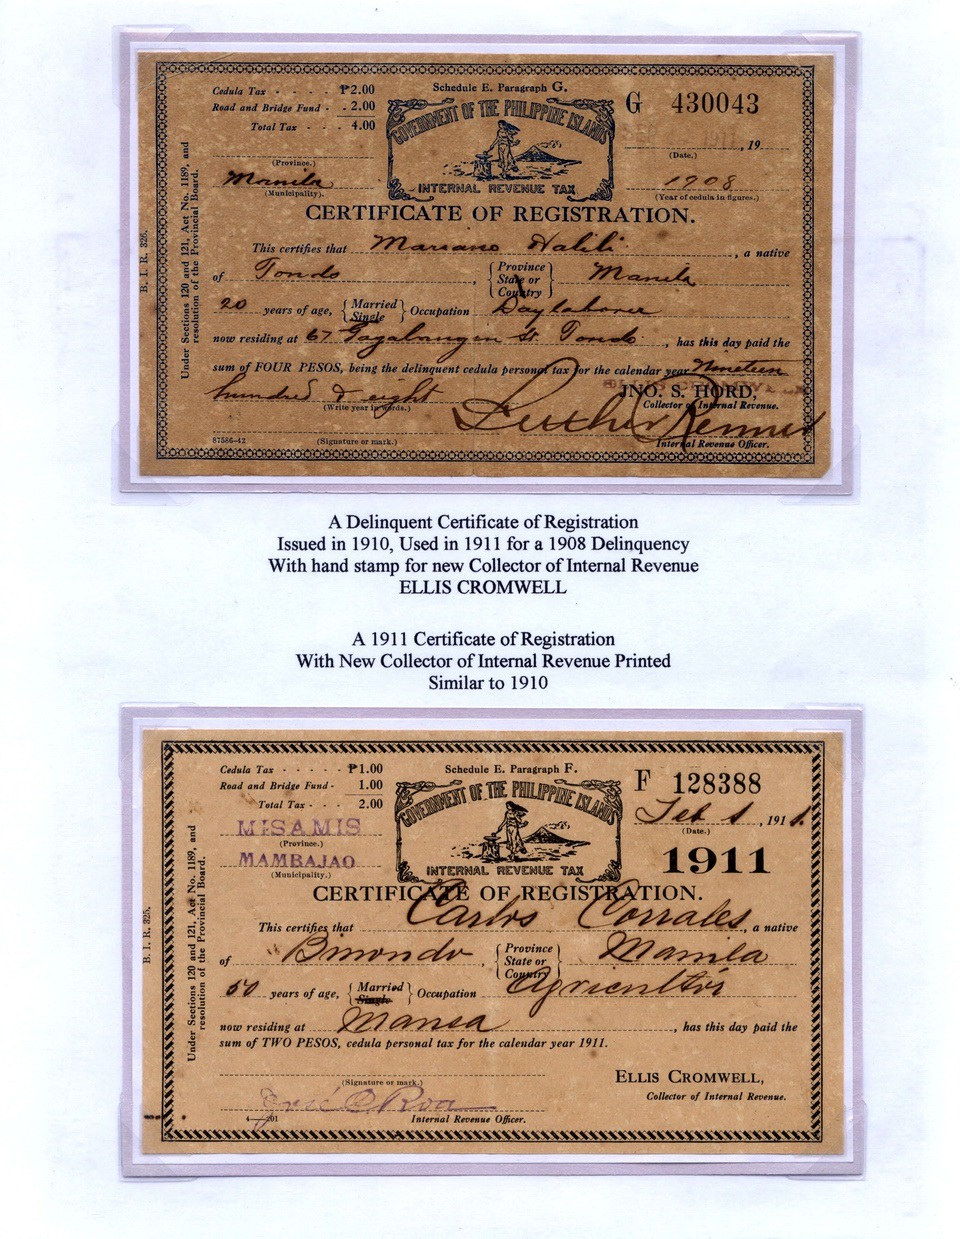 Cedula Tax - - - - ₱2.00
Road and Bridge Fund - - 2.00
Total Tax - - - 4.00
Schedule E. Paragraph G.
GOVERNMENT OF THE PHILIPPINE ISLANDS
INTERNAL REVENUE TAX
G 430043
, 19
(Date.)
(Province.)
Manila
(Municipality).
1908
(Year of cedula in figures.)
CERTIFICATE OF REGISTRATION.
This certifies that Mariano Halili, a native
of Tondo, {Province State or Country} Manila
20 years of age, {Married Single} Occupation Daylaborer
now residing at 67 Gagalangin St. Tondo, has this day paid the
sum of FOUR PESOS, being the delinquent cedula personal tax for the calendar year Nineteen
hundred & eight
(Write year in words.)
JNO. S. HORD,
Collector of Internal Revenue.
Luther Renner
87586-42
(Signature or mark.)
Internal Revenue Officer.
B. I. R. 326.
Under Sections 120 and 121, Act No. 1189, and
resolution of the Provincial Board.
A Delinquent Certificate of Registration
Issued in 1910, Used in 1911 for a 1908 Delinquency
With hand stamp for new Collector of Internal Revenue
ELLIS CROMWELL
A 1911 Certificate of Registration
With New Collector of Internal Revenue Printed
Similar to 1910
Cedula Tax - - - - - ₱1.00
Road and Bridge Fund - 1.00
Total Tax - - - 2.00
Schedule E. Paragraph F.
GOVERNMENT OF THE PHILIPPINE ISLANDS
INTERNAL REVENUE TAX
F 128388
Feb 1, 1911.
(Date.)
MISAMIS
(Province.)
MAMBAJAO
(Municipality.)
1911
CERTIFICATE OF REGISTRATION.
This certifies that Carlos Corrales, a native
of Binondo, {Province State or Country} Manila
50 years of age, {Married Single} Occupation Agricultór
now residing at Mansa, has this day paid the
sum of TWO PESOS, cedula personal tax for the calendar year 1911.
(Signature or mark.)
ELLIS CROMWELL,
Collector of Internal Revenue.
José Roa
Internal Revenue Officer.
B. I. R. 325.
Under Sections 120 and 121, Act No. 1189, and
resolution of the Provincial Board.